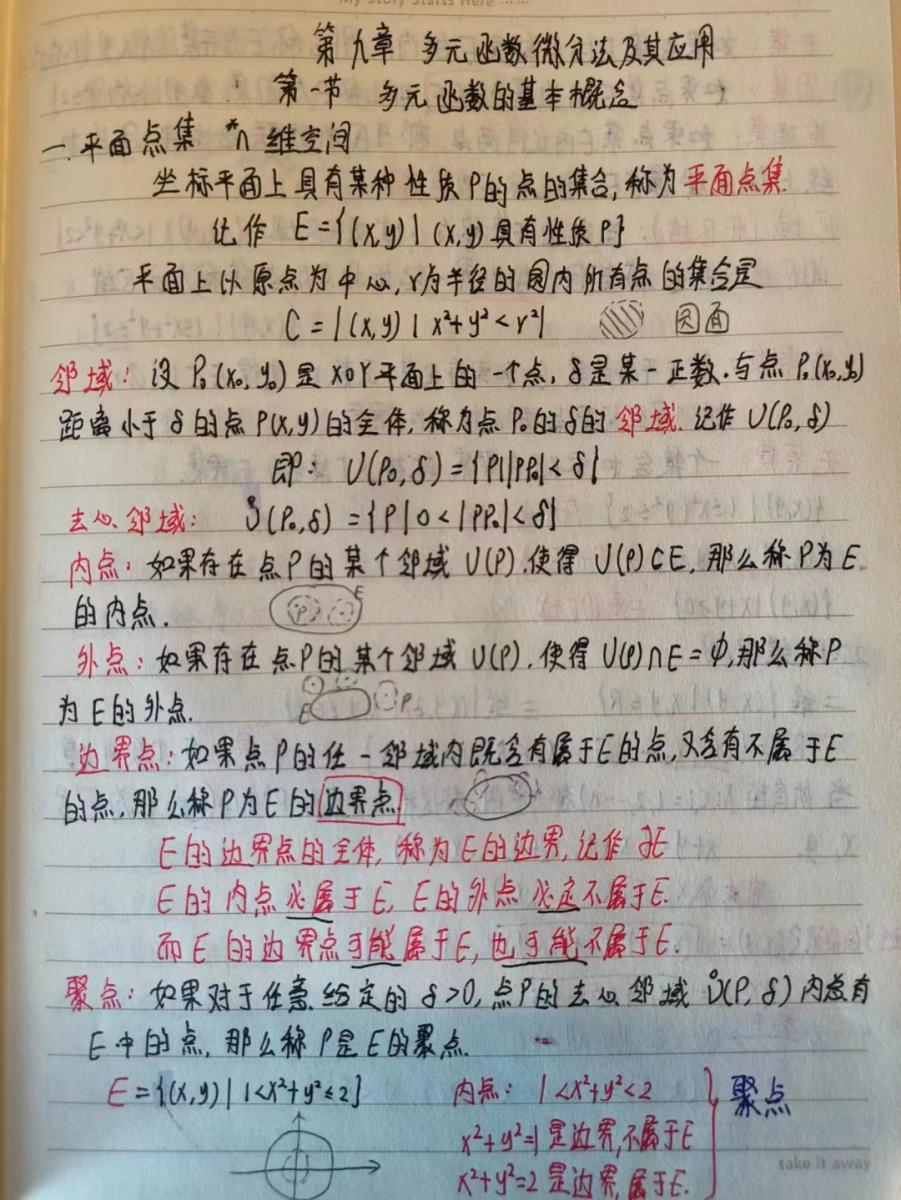 My Story Starts Here ······
第九章 多元函数微分法及其应用
第一节 多元函数的基本概念
一.平面点集 *n 维空间
坐标平面上具有某种性质P的点的集合,称为平面点集.
记作 E={(x,y)|(x,y)具有性质P}
平面上以原点为中心,r为半径的圆内所有点的集合是
C={(x,y)|x²+y²<r²} 圆面
邻域: 设P₀(x₀,y₀)是XOY平面上的一个点,δ是某一正数.与点P₀(x₀,y₀)
距离小于δ的点P(x,y)的全体,称为点P₀的δ的邻域.记作U(P₀,δ)
即: U(P₀,δ)={P||PP₀|<δ}
去心邻域: Ů(P₀,δ)={P|0<|PP₀|<δ}
内点: 如果存在点P的某个邻域U(P).使得U(P)⊂E,那么称P为E
的内点. P E
外点: 如果存在点P的某个邻域U(P),使得U(P)∩E=Φ,那么称P
为E的外点. E P
边界点:如果点P的任一邻域内既含有属于E的点,又含有不属于E
的点,那么称P为E的边界点
E的边界点的全体,称为E的边界,记作∂E
E的内点必属于E,E的外点必定不属于E.
而E的边界点可能属于E,也可能不属于E.
聚点: 如果对于任意给定的δ>0,点P的去心邻域Ů(P,δ)内总有
E中的点,那么称P是E的聚点.
E={(x,y)|1<x²+y²≤2} 内点: 1<x²+y²<2 聚点
x²+y²=1是边界,不属于E
x²+y²=2是边界,属于E.
take it away